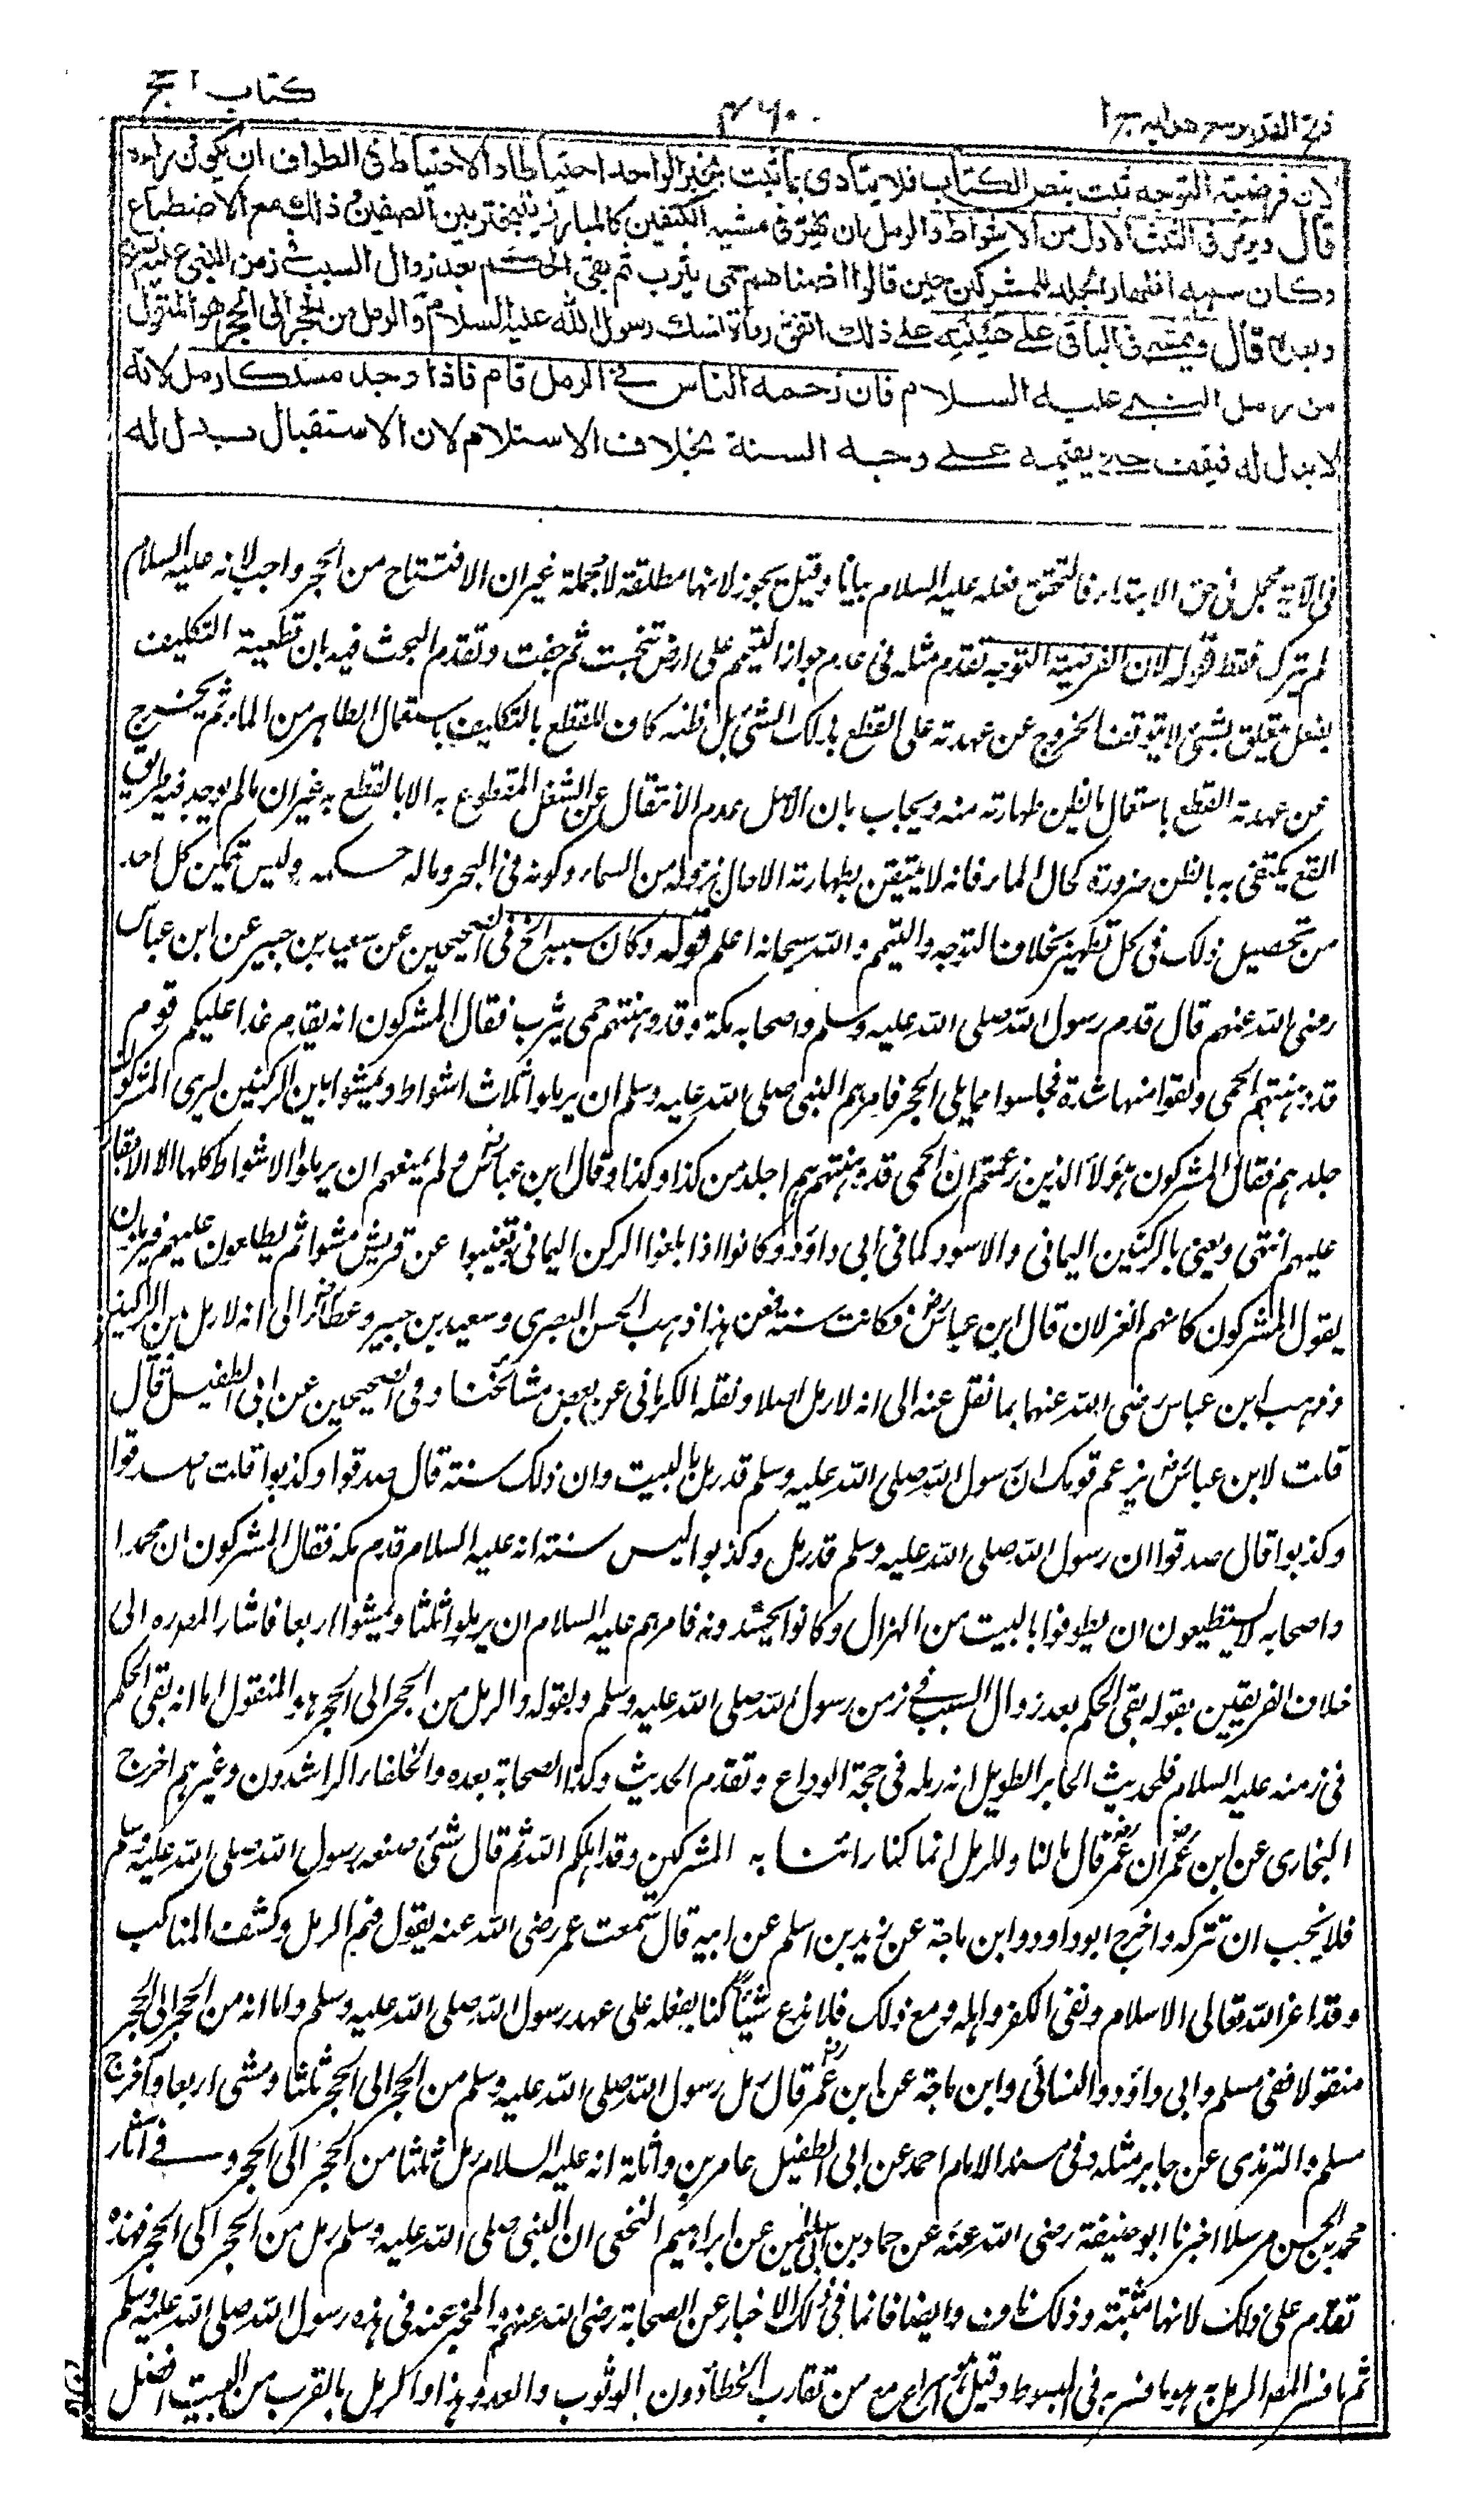 كتاب الحج
۴۶۰
فتح القدير مع هدايه ج ا
لان فرضية التوجه ثبت بنص الكتاب فلا يتادى بما ثبت بخبر الواحد احتياطا والاحتياط فى الطواف ان يكون وراءه
قال ويرمل فى الثلث الاول من الاشواط والرمل ان يهز فى مشيه الكتفين كالمبارز يتبختر بين الصفين وذلك مع الاضطباع
وكان سببه اظهار الجلد للمشركين حين قالوا اضناهم حمى يثرب ثم بقى الحكم بعد زوال السبب فى زمن النبى عليه السلام
وبعده قال ويمشى فى الباقى على هينته على ذلك اتفق رواة نسك رسول الله عليه السلام والرمل من الحجر الى الحجر هو المنقول
من رمل النبى عليه السلام فان زحمه الناس فى الرمل قام فاذا وجد مسلكا رمل لانه
لا بدل له فيقف حتى يقيمه على وجه السنة بخلاف الاستلام لان الاستقبال بدل له
فى الآية مجمل فى حق الابتداء فالتحق فعله عليه السلام بيانا وقيل يجوز لانها مطلقة لا مجملة غير ان الافتتاح من الحجر واجب لانه عليه السلام
لم يترك فقط قوله لان الفرضية التوجه تقدم مثله فى عدم جواز التيمم على ارض تنجست ثم جفت وتقدم البحث فيه بان قطعية التكليف
بفعل يتعلق بشئ لا يتوقف الخروج عن عهدته على القطع بذلك الشئ بل ظنه كاف للقطع بالتكليف باستعمال الطاهر من الماء ثم يخرج
عن عهدة القطع باستعمال ما يظن طهارته منه ويجاب بان الاصل عدم الانتقال عن الشغل المقطوع به الا بالقطع به غير ان ما لم يوجد فيه طريق
القطع يكتفى به بالظن ضرورة كحال الماء فانه لا يتيقن بطهارته الا حال نزوله من السماء وكونه فى البحر وما له حكمه وليس يمكن كل احد
من تحصيل ذلك فى كل تطهير بخلاف التوجه والتيمم والله سبحانه اعلم قوله وكان سببه الخ فى الصحيحين عن سعيد بن جبير عن ابن عباس
رضى الله عنهم قال قدم رسول الله صلى الله عليه وسلم واصحابه مكة وقد وهنتهم حمى يثرب فقال المشركون انه يقدم غدا عليكم قوم
قد وهنتهم الحمى ولقوا منها شدة فجلسوا مما يلى الحجر فامرهم النبى صلى الله عليه وسلم ان يرملوا ثلاث اشواط ويمشوا بين الركنين ليرى المشركون
جلدهم فقال المشركون هؤلاء الذين زعمتم ان الحمى قد وهنتهم هم اجلد من كذا وكذا وقال ابن عباس رض ولم يمنعهم ان يرملوا الاشواط كلها الا الابقاء
عليهم انتهى ويعنى بالركنين اليمانى والاسود كما فى ابى داؤد وكانوا اذا بلغوا الركن اليمانى وتغيبوا عن قريش مشوا ثم يطلعون عليهم فيرملون
يقول المشركون كانهم الغزلان قال ابن عباس رض فكانت سنة فعن هذا ذهب الحسن البصرى وسعيد بن جبير وعطاء الى انه لا رمل بين الركنين
وذهب ابن عباس رضى الله عنهما بما نقل عنه الى انه لا رمل اصلا ونقله الكرمانى عن بعض مشائخنا وفى الصحيحين عن ابى الطفيل قال
قلت لابن عباس رض يزعم قومك ان رسول الله صلى الله عليه وسلم قد رمل بالبيت وان ذلك سنته قال صدقوا وكذبوا قلت ما صدقوا
وكذبوا قال صدقوا ان رسول الله صلى الله عليه وسلم قد رمل وكذبوا ليس سنة انه عليه السلام قدم مكة فقال المشركون ان محمدا
واصحابه لا يستطيعون ان يطوفوا بالبيت من الهزال وكانوا يحسدونه فامرهم عليه السلام ان يرملوا ثلثا ويمشوا اربعا فاشار المصره الى
خلاف الفريقين بقوله بقى الحكم بعد زوال السبب فى زمن رسول الله صلى الله عليه وسلم وبقوله والرمل من الحجر الى الحجر هو المنقول اما انه بقى الحكم
فى زمنه عليه السلام فلحديث الجابر الطويل انه رمله فى حجة الوداع وتقدم الحديث وكذا الصحابة بعده والخلفاء الراشدون وغيرهم اخرج
البخارى عن ابن عمر ان عمر رض قال ما لنا وللرمل انما كنا رائينا به المشركين وقد اهلكهم الله ثم قال شئ صنعه رسول الله صلى الله عليه وسلم
فلا نحب ان نتركه واخرج ابو داود وابن ماجة عن زيد بن اسلم عن ابيه قال سمعت عمر رضى الله عنه يقول فيم الرمل وكشف المناكب
وقد اعز الله تعالى الاسلام ونفى الكفر واهله ومع ذلك فلا ندع شيئا كنا نفعله على عهد رسول الله صلى الله عليه وسلم واما انه من الحجر الى الحجر
منقولا ففى مسلم وابى داؤد والنسائى وابن ماجة عن ابن عمر رض قال رمل رسول الله صلى الله عليه وسلم من الحجر الى الحجر ثلثا ومشى اربعا واخرج
مسلم والترمذى عن جابر مثله وفى مسند الامام احمد عن ابى الطفيل عامر بن واثلة انه عليه السلام رمل ثلثا من الحجر الى الحجر وفى آثار
محمد بن الحسن مرسلا اخبرنا ابو حنيفة رضى الله عنه عن حماد بن ابى سليمين عن ابراهيم النخعى ان النبى صلى الله عليه وسلم رمل من الحجر الى الحجر فهذه
تقدم على ذلك لانها مثبتة وذلك ناف وايضا فانما فى ذلك الاخبار عن الصحابة رضى الله عنهم والمخبر عنه فى هذه رسول الله صلى الله عليه وسلم
ثم ما فسر المص الرمل به هو ما فسر به فى المبسوط وقيل هو اسراع مع من تقارب الخطا دون الوثوب والعدو وهذا والرمل بالقرب من البيت افضل